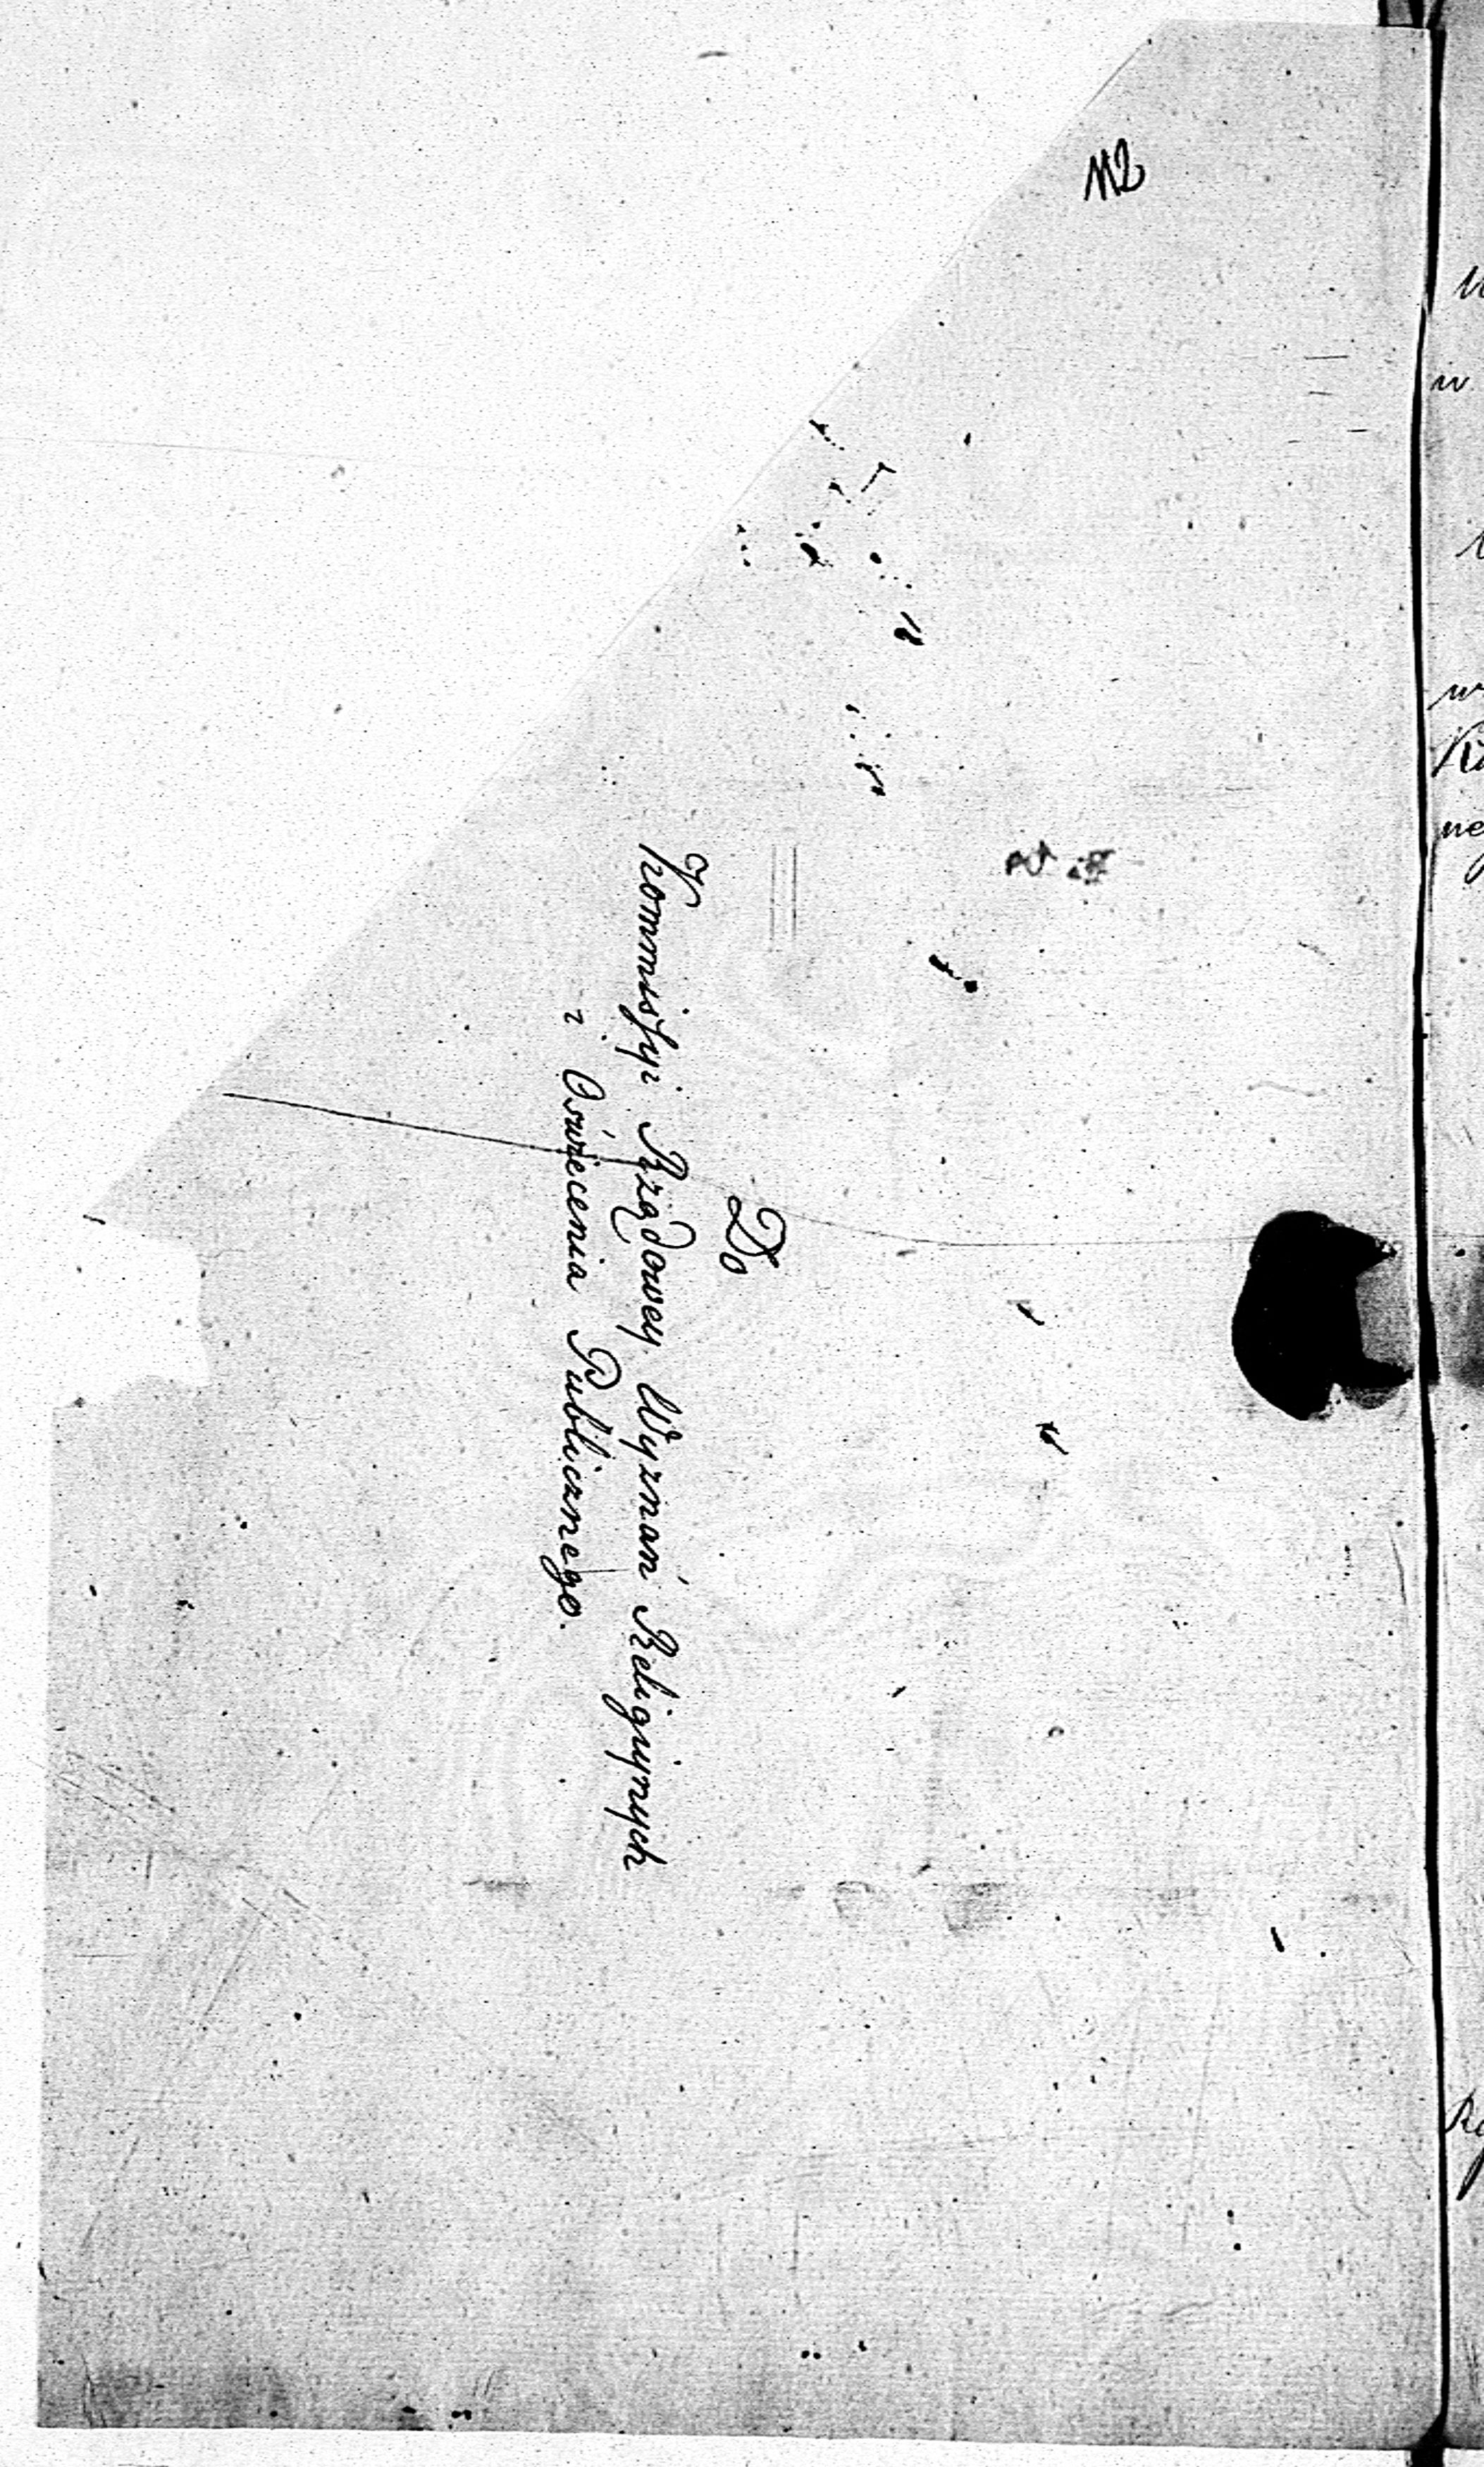 112
Do
Kommissyi Rządowey Wyznań Religiynych
i Oświecenia Publicznego.